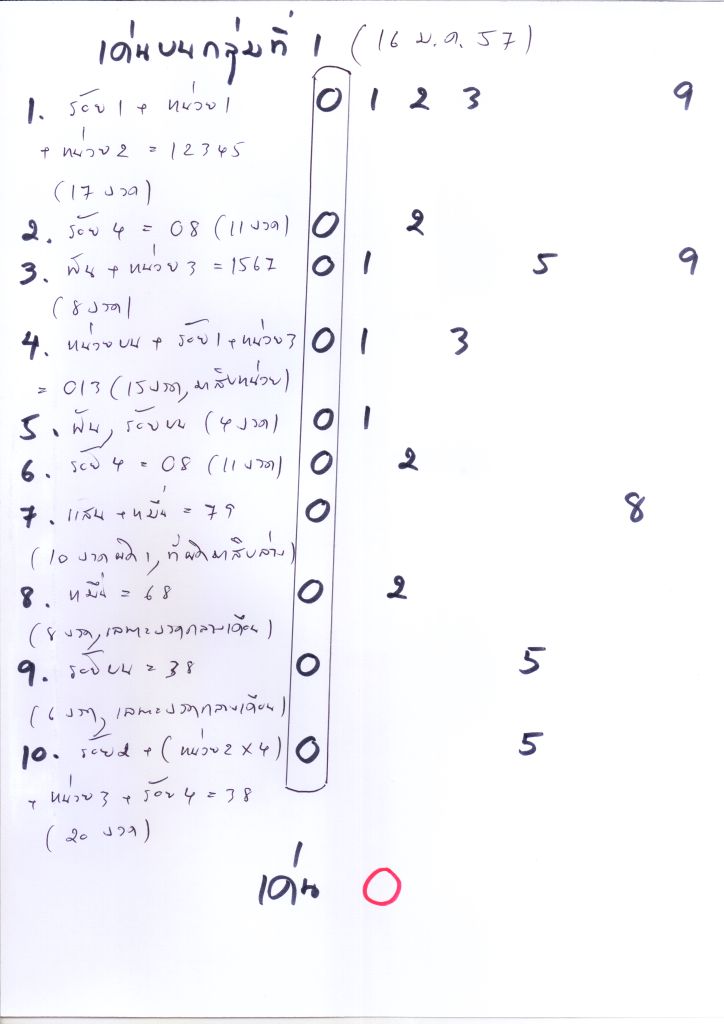 เด่นบนกลุ่มที่ 1 (16 ม.ค. 57)
1. ร้อย 1 + หน่วย 1 0 1 2 3 9
+ หน่วย 2 = 12345
(17 งวด)
2. ร้อย 4 = 08 (11 งวด) 0 2
3. พัน + หน่วย 3 = 1567 0 1 5 9
(8 งวด)
4. หน่วยบน + ร้อย 1 + หน่วย 3 0 1 3
= 013 (15 งวด, มาสิบหน่วย)
5. พัน, ร้อยบน (4 งวด) 0 1
6. ร้อย 4 = 08 (11 งวด) 0 2
7. แสน + หมื่น = 79 0 8
(10 งวดผิด 1, ที่ผิดมาสิบล่าง)
8. หมื่น = 68 0 2
(8 งวด, เฉพาะงวดกลางเดือน)
9. ร้อยบน = 38 0 5
(6 งวด, เฉพาะงวดกลางเดือน)
10. ร้อย 2 + (หน่วย 2 x 4) 0 5
+ หน่วย 3 + ร้อย 4 = 38
(20 งวด)
เด่น 0